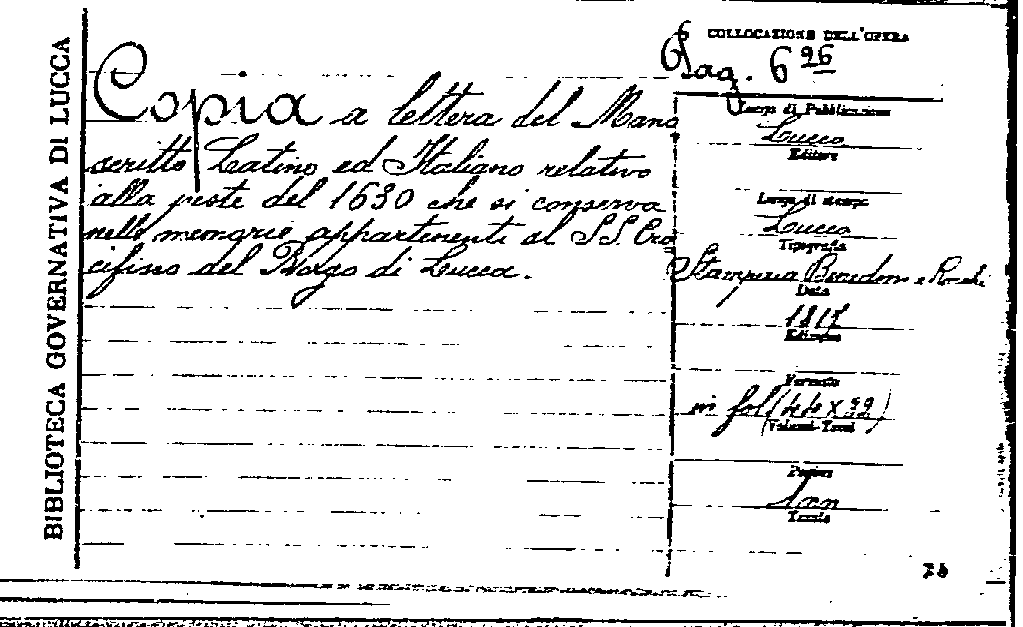 BIBLIOTECA GOVERNATIVA DI LUCCA
Copia a lettera del Mano
scritto Latino ed Italiano relativo
alla peste del 1630 che si conserva
nelle memorie appartenenti al SS. Cro
cifisso del Borgo di Lucca.
COLLOCAZIONE DELL'OPERA
Pag. 6 96
Luogo di Pubblicazione
Lucca
Editore
Luogo di stampa
Lucca
Tipografia
Stamperia Benedini e Rocchi
Data
1817
Edizione
Formato
in fol (44 X 32)
Volumi-Tomi
Pagine
Tavole